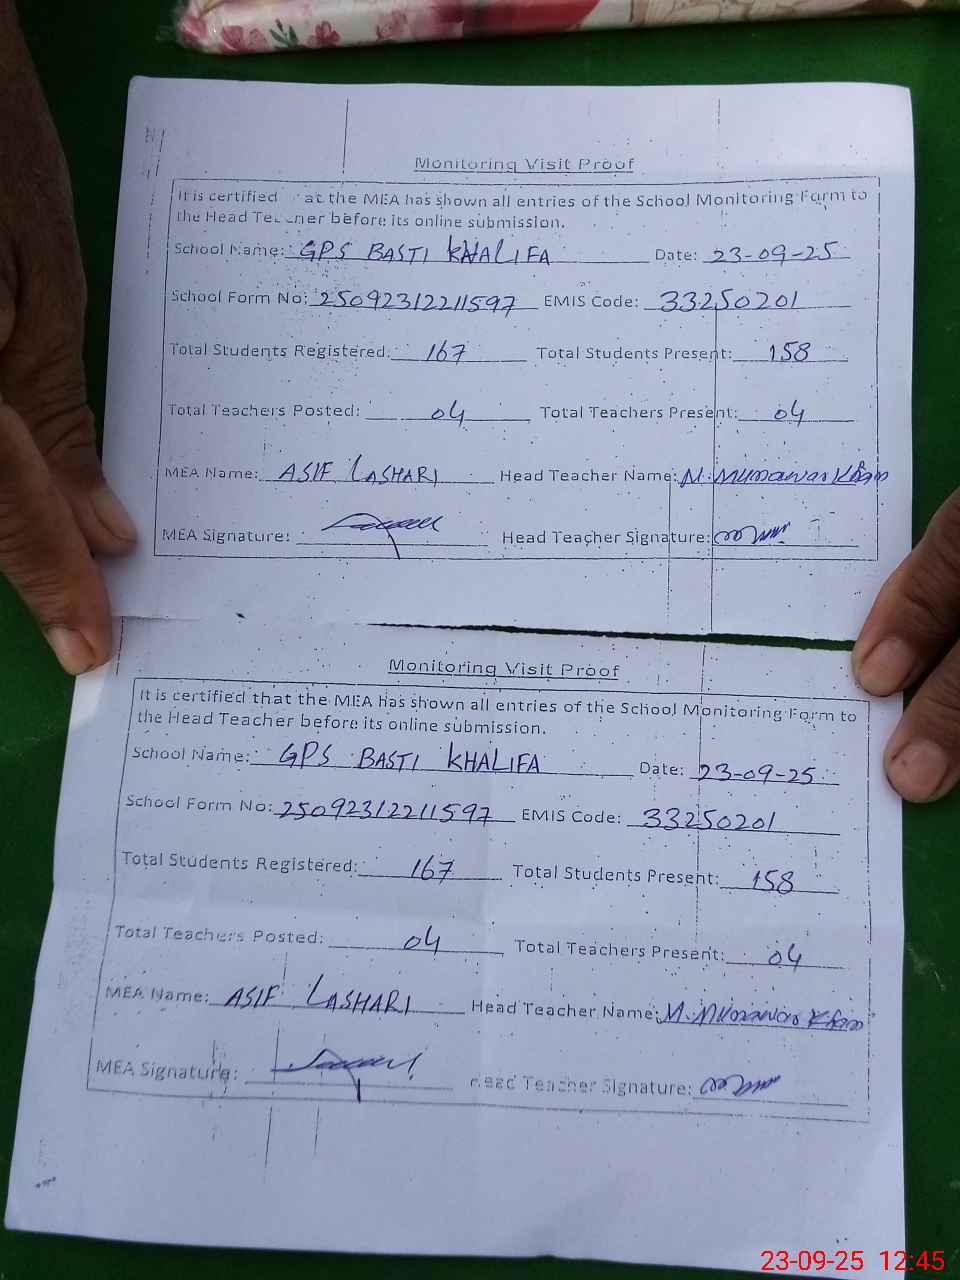 Monitoring Visit Proof
It is certified at the MEA has shown all entries of the School Monitoring Form to
the Head Teacher before its online submission.
School Name: GPS BASTI KHALIFA Date: 23-09-25
School Form No: 25092312211597 EMIS Code: 33250201
Total Students Registered: 167 Total Students Present: 158
Total Teachers Posted: 04 Total Teachers Present: 04
MEA Name: ASIF LASHARI Head Teacher Name: M. Munawar Khan
MEA Signature: Head Teacher Signature:
Monitoring Visit Proof
It is certified that the MEA has shown all entries of the School Monitoring Form to
the Head Teacher before its online submission.
School Name: GPS BASTI KHALIFA Date: 23-09-25
School Form No: 25092312211597 EMIS Code: 33250201
Total Students Registered: 167 Total Students Present: 158
Total Teachers Posted: 04 Total Teachers Present: 04
MEA Name: ASIF LASHARI Head Teacher Name: M. Munawar Khan
MEA Signature: Head Teacher Signature:
23-09-25 12:45